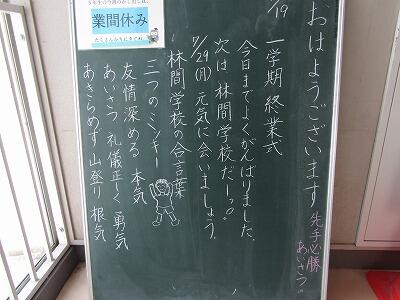 おはようございます
先手必勝
あいさつ。
7/19 一学期 終業式
今日までよくがんばりました。
次は 林間学校だーっ。
7/29(月) 元気に会いましょう。
林間学校の合言葉
三つのミンキー
友情深める 本気
あいさつ 礼儀正しく 勇気
あきらめず 山登り 根気
業間休み